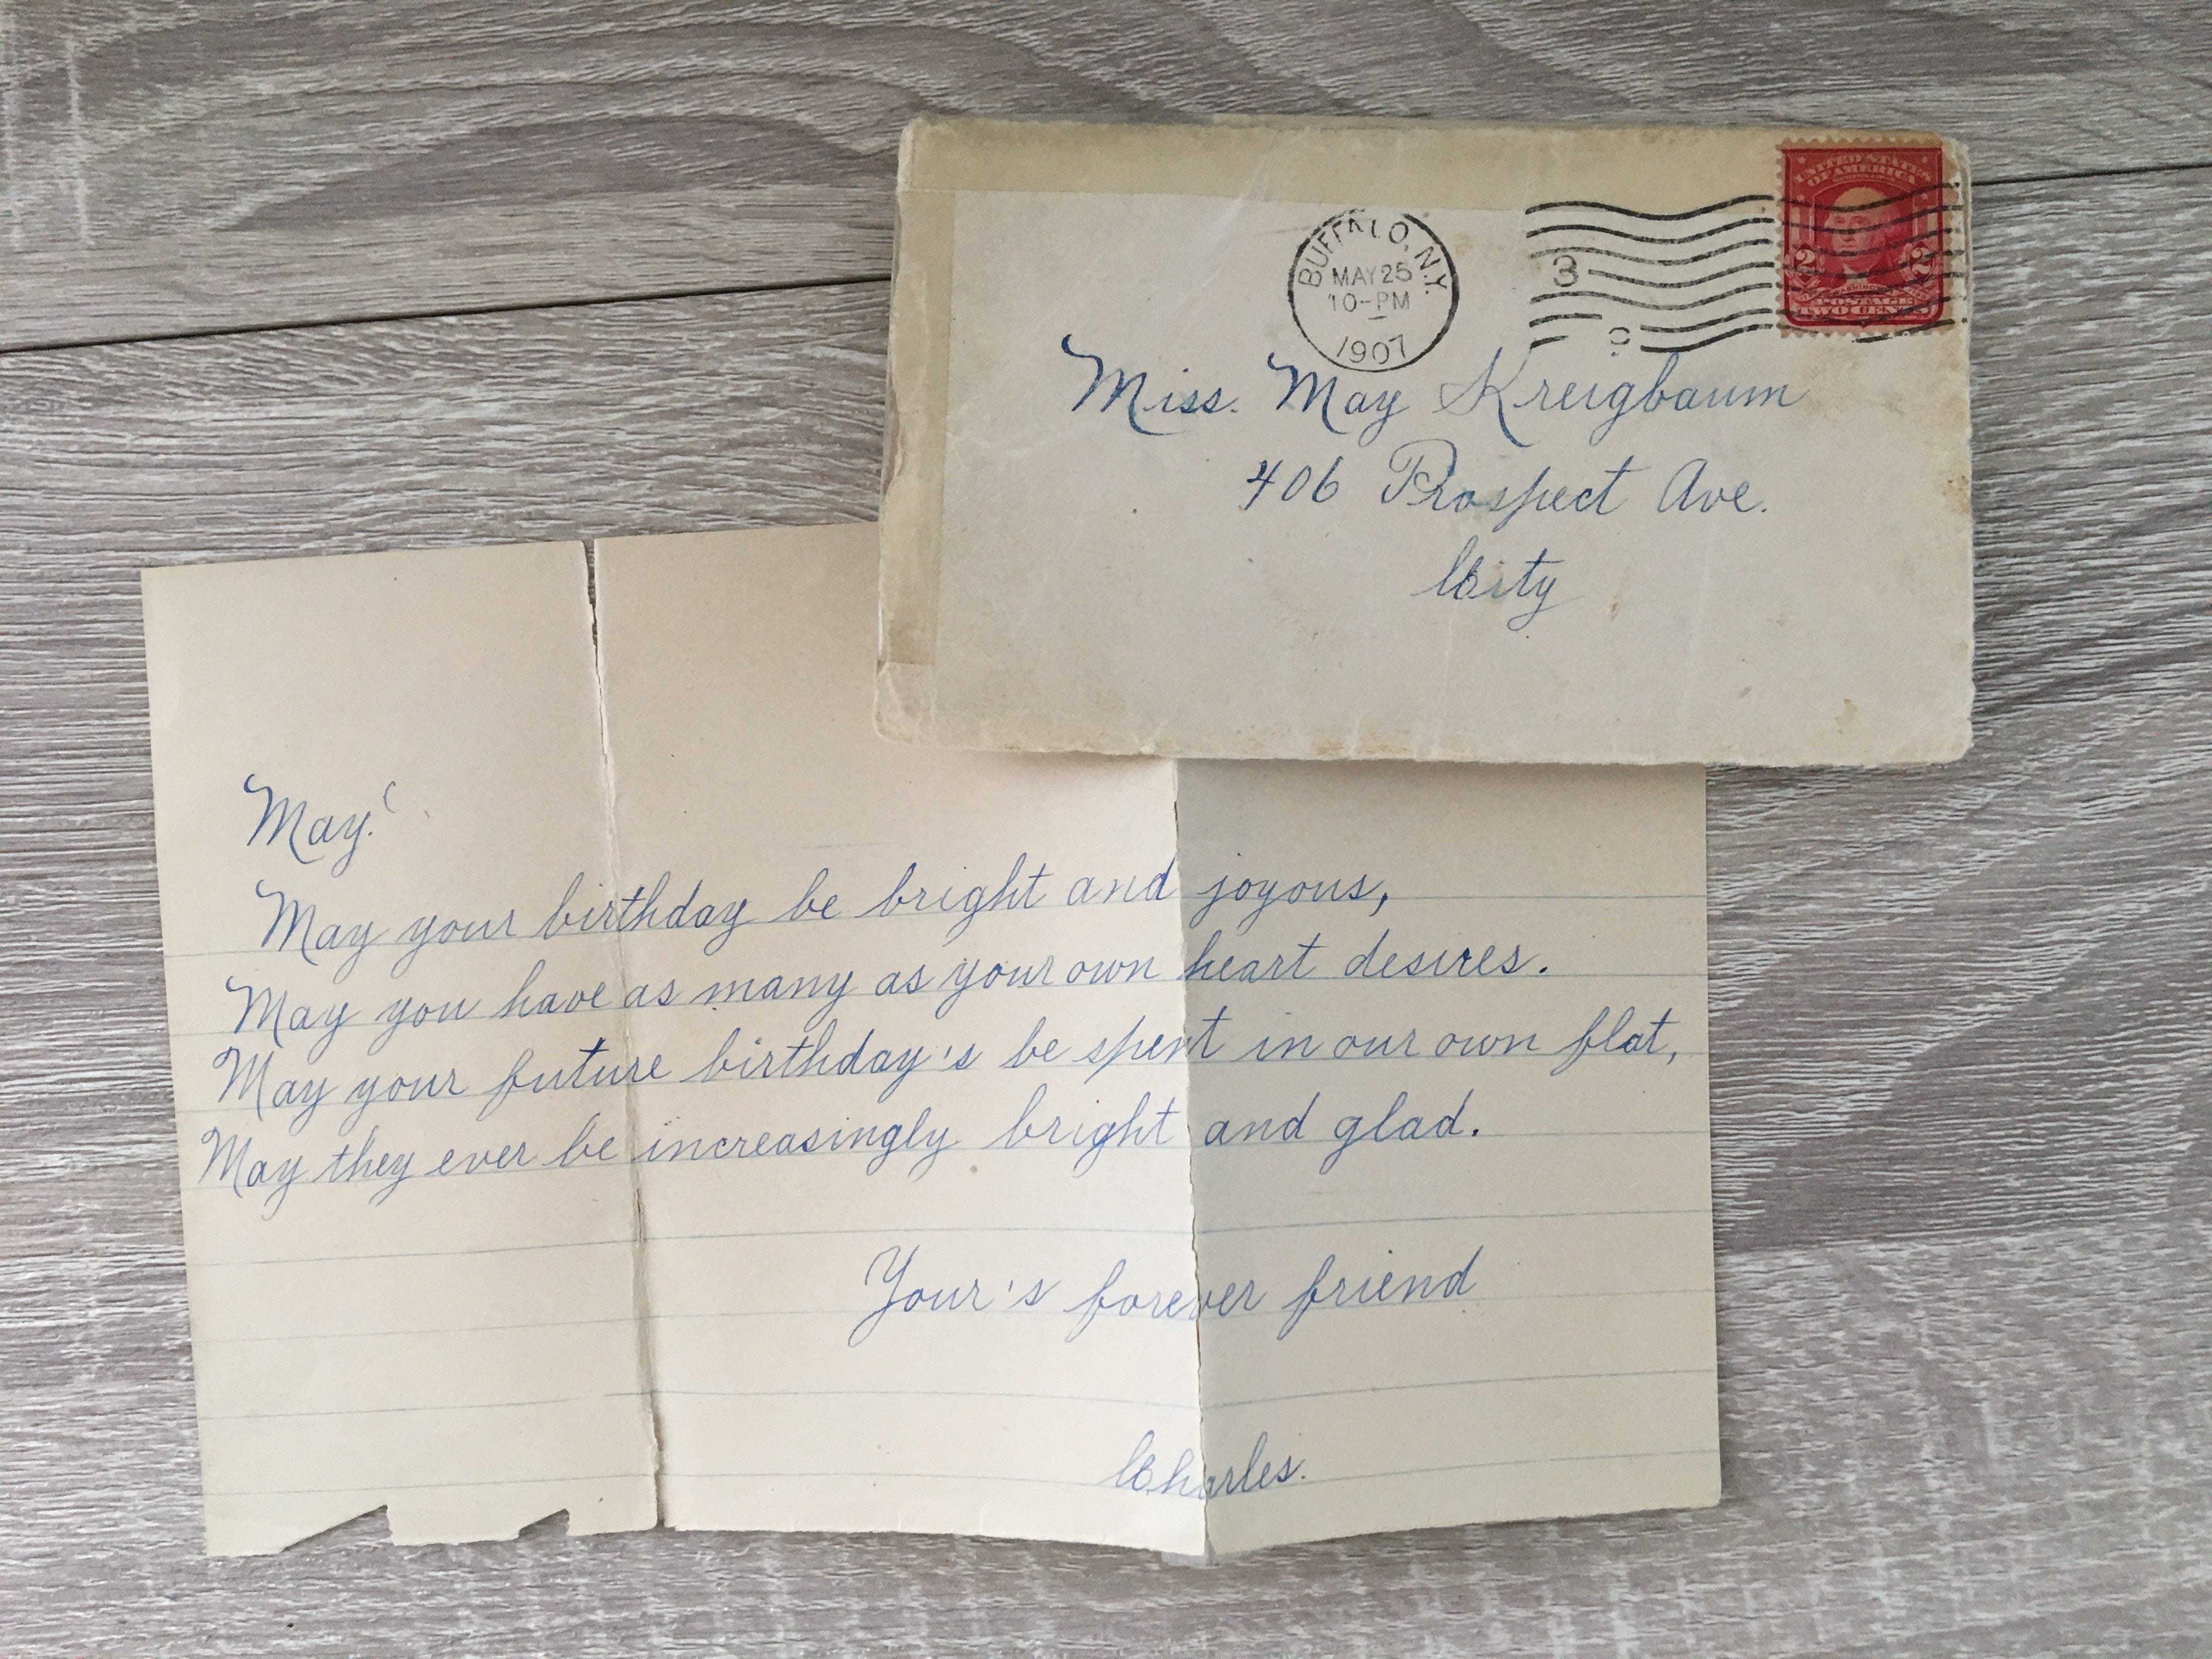 BUFFALO, N.Y.
MAY 25
10-PM
1907
3
UNITED STATES
OF AMERICA
2 2
POSTAGE
TWO CENTS
Miss. May Kreigbaum
406 Prospect Ave.
City
May!
May your birthday be bright and joyous,
May you have as many as your own heart desires.
May your future birthday's be spent in our own flat,
May they ever be increasingly bright and glad.
Your's forever friend
Charles.